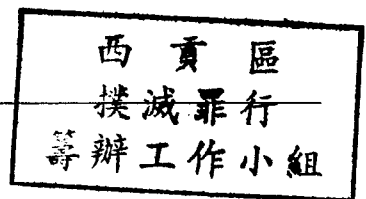 西貢區
撲滅罪行
籌辦工作小組